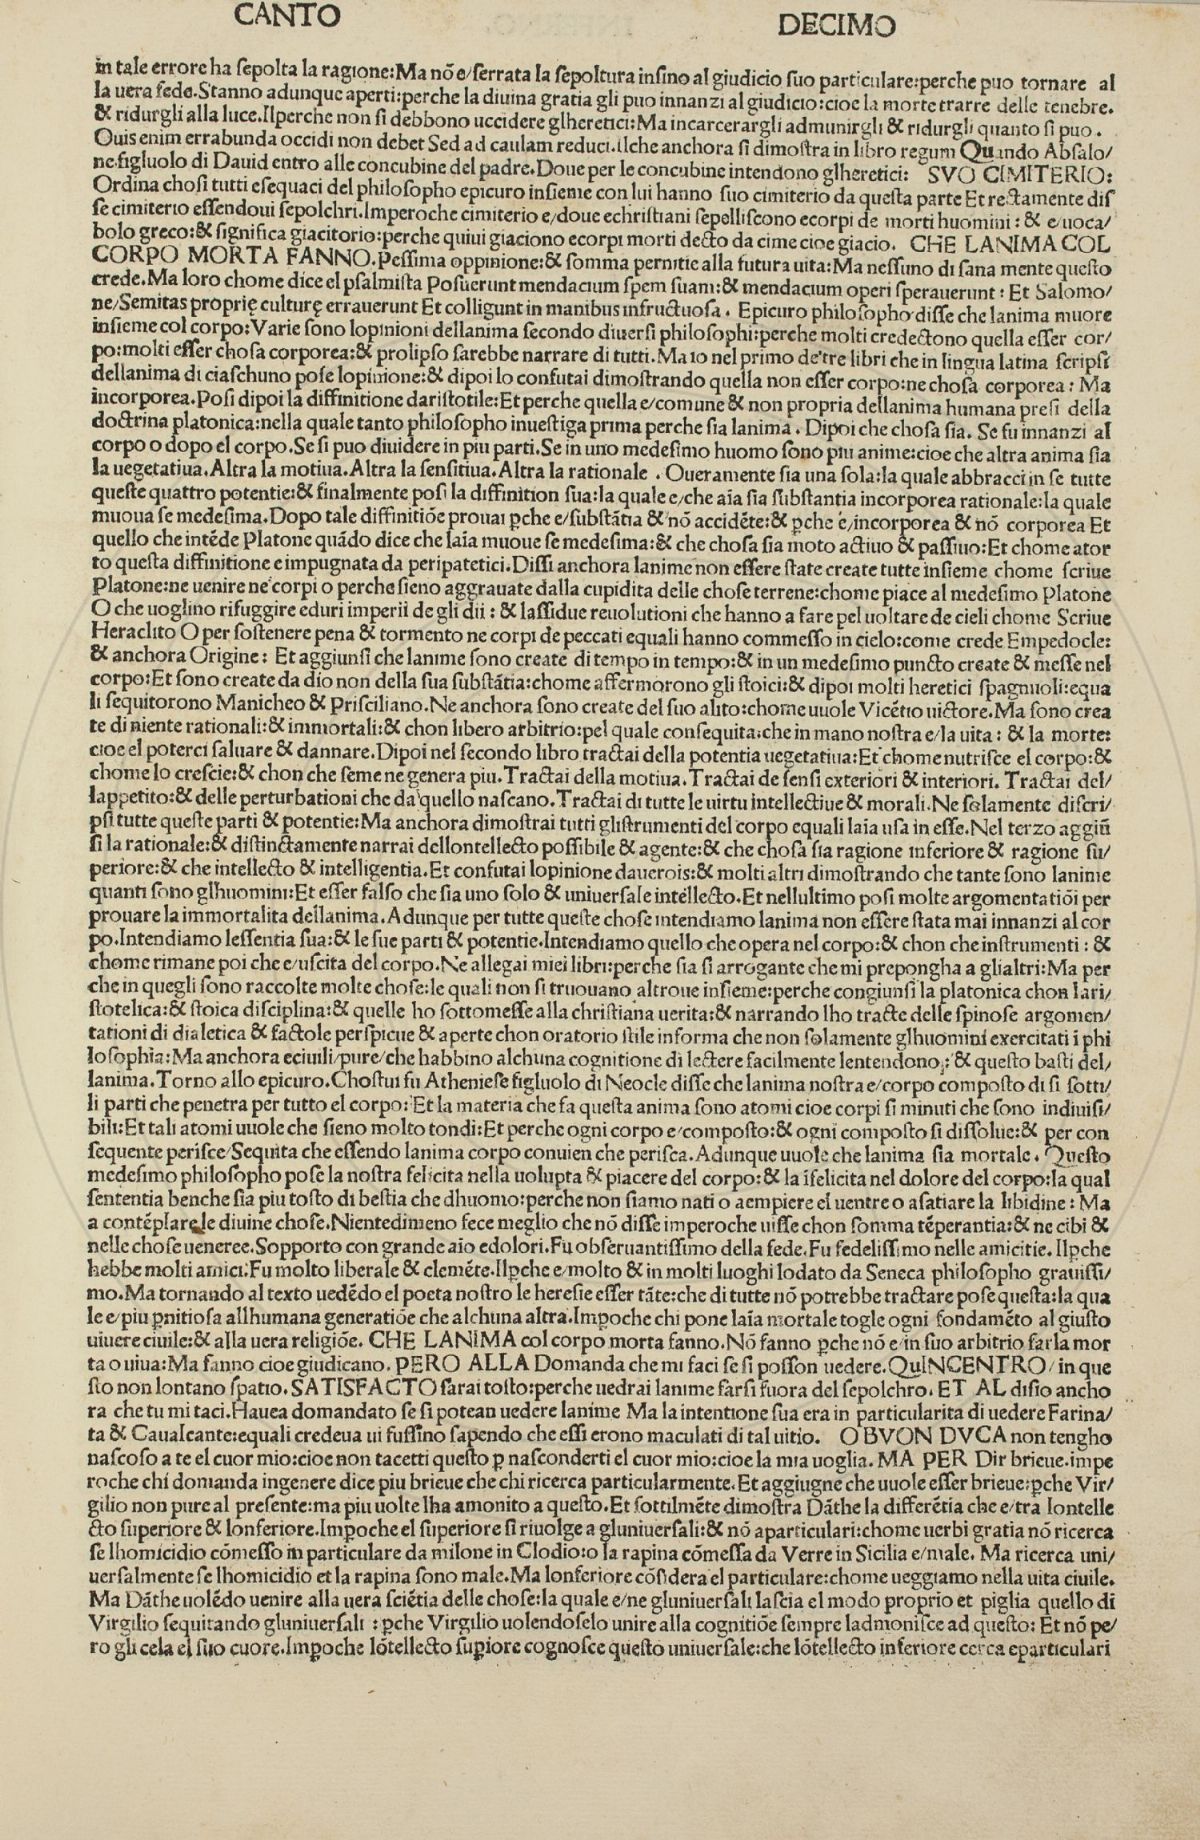 CANTO DECIMO
in tale errore ha ſepolta la ragione:Ma nõ e/ſerrata la ſepoltura inſino al giudicio ſuo particulare:perche puo tornare al
la uera fede.Stanno adunque aperti:perche la diuina gratia gli puo innanzi al giudicio:cioe la morte trarre delle tenebre.
& ridurgli alla luce.Ilperche non ſi debbono uccidere glheretici:Ma incarcerargli admunirgli & ridurgli quanto ſi puo.
Quis enim errabunda occidi non debet Sed ad caulam reduci.Ilche anchora ſi dimoſtra in libro regum Quando Abſalo/
ne.figluolo di Dauid entro alle concubine del padre.Doue per le concubine intendono glheretici: SVO CIMITERIO:
Ordina choſi tutti eſequaci del philoſopho epicuro inſieme con lui hanno ſuo cimiterio da queſta parte Et rectamente diſ
ſe cimiterio eſſendoui ſepolchri.Imperoche cimiterio e/doue echriſtiani ſepelliſcono ecorpi de morti huomini: & e/uoca/
bolo greco:& ſignifica giacitorio:perche quiui giaciono ecorpi morti decto da cime cioe giacio. CHE LANIMA COL
CORPO MORTA FANNO.Peſſima oppinione:& ſomma pernitie alla futura uita:Ma neſſuno di ſana mente queſto
crede.Ma loro chome dice el pſalmiſta Poſuerunt mendacium ſpem ſuam:& mendacium operi ſperauerunt: Et Salomo/
ne/Semitas proprię culturę errauerunt Et colligunt in manibus infructuoſa. Epicuro philoſopho diſſe che lanima muore
inſieme col corpo:Varie ſono lopinioni dellanima ſecondo diuerſi philoſophi:perche molti credectono quella eſſer cor/
po:molti eſſer choſa corporea:& prolipſo ſarebbe narrare di tutti.Ma io nel primo de'tre libri che in lingua latina ſcripſi
dellanima di ciaſchuno poſe lopinione:& dipoi lo confutai dimoſtrando quella non eſſer corpo:ne choſa corporea: Ma
incorporea.Poſi dipoi la diffinitione dariſtotile:Et perche quella e/comune & non propria dellanima humana preſi della
doctrina platonica:nella quale tanto philoſopho inueſtiga prima perche ſia lanima. Dipoi che choſa ſia. Se fu innanzi al
corpo o dopo el corpo.Se ſi puo diuidere in piu parti.Se in uno medeſimo huomo ſono piu anime:cioe che altra anima ſia
la uegetatiua.Altra la motiua.Altra la ſenſitiua.Altra la rationale. Oueramente ſia una ſola:la quale abbracci in ſe tutte
queſte quattro potentie:& finalmente poſi la diffinition ſua:la quale e/che aĩa ſia ſubſtantia incorporea rationale:la quale
muoua ſe medeſima.Dopo tale diffinitiõe prouai ꝑche e/ſubſtãtia & nõ accidẽte:& ꝑche e/incorporea & nõ corporea Et
quello che intẽde Platone quãdo dice che laĩa muoue ſe medeſima:& che choſa ſia moto actiuo & paſſiuo:Et chome ator
to queſta diffinitione e impugnata da peripatetici.Diſſi anchora lanime non eſſere ſtate create tutte inſieme chome ſcriue
Platone:ne uenire ne'corpi o perche ſieno aggrauate dalla cupidita delle choſe terrene:chome piace al medeſimo Platone
O che uoglino rifuggire eduri imperii de gli dii: & laſſidue reuolutioni che hanno a fare pel uoltare de cieli chome Scriue
Heraclito O per ſoſtenere pena & tormento ne corpi de peccati equali hanno commeſſo in cielo:come crede Empedocle:
& anchora Origine: Et aggiunſi che lanime ſono create di tempo in tempo:& in un medeſimo puncto create & meſſe nel
corpo:Et ſono create da dio non della ſua ſubſtãtia:chome affermorono gli ſtoici:& dipoi molti heretici ſpagnuoli:equa
li ſequitorono Manicheo & Priſciliano.Ne anchora ſono create del ſuo alito:chome uuole Vicẽtio uictore.Ma ſono crea
te di niente rationali:& immortali:& chon libero arbitrio:pel quale conſequita:che in mano noſtra e/la uita: & la morte:
cioe el poterci ſaluare & dannare.Dipoi nel ſecondo libro tractai della potentia uegetatiua:Et chome nutriſce el corpo:&
chome lo creſcie:& chon che ſeme ne genera piu.Tractai della motiua.Tractai de ſenſi exteriori & interiori. Tractai del/
lappetito:& delle perturbationi che da quello naſcano.Tractai di tutte le uirtu intellectiue & morali.Ne ſolamente diſcri/
pſi tutte queſte parti & potentie:Ma anchora dimoſtrai tutti gliſtrumenti del corpo equali laĩa uſa in eſſe.Nel terzo aggiũ
ſi la rationale:& diſtinctamente narrai dellontellecto poſſibile & agente:& che choſa ſia ragione inferiore & ragione ſu/
periore:& che intellecto & intelligentia.Et confutai lopinione dauerois:& molti altri dimoſtrando che tante ſono lanime
quanti ſono glhuomini:Et eſſer falſo che ſia uno ſolo & uniuerſale intellecto.Et nellultimo poſi molte argomentatiõi per
prouare la immortalita dellanima.Adunque per tutte queſte choſe intendiamo lanima non eſſere ſtata mai innanzi al cor
po.Intendiamo leſſentia ſua:& le ſue parti & potentie.Intendiamo quello che opera nel corpo:& chon che inſtrumenti: &
chome rimane poi che e/uſcita del corpo.Ne allegai miei libri:perche ſia ſi arrogante che mi prepongha a glialtri:Ma per
che in quegli ſono raccolte molte choſe:le quali non ſi truouano altroue inſieme:perche congiunſi la platonica chon lari/
ſtotelica:& ſtoica diſciplina:& quelle ho ſottomeſſe alla chriſtiana uerita:& narrando lho tracte delle ſpinoſe argomen/
tationi di dialetica & factole perſpicue & aperte chon oratorio ſtile informa che non ſolamente glhuomini exercitati i phi
loſophia:Ma anchora eciuili/pure/che habbino alchuna cognitione di lectere facilmente lentendono;: & queſto baſti del/
lanima.Torno allo epicuro.Choſtui fu Athenieſe figluolo di Neocle diſſe che lanima noſtra e/corpo compoſto di ſi ſotti/
li parti che penetra per tutto el corpo:Et la materia che fa queſta anima ſono atomi cioe corpi ſi minuti che ſono indiuiſi/
bili:Et tali atomi uuole che ſieno molto tondi:Et perche ogni corpo e/compoſto:& ogni compoſto ſi diſſolue:& per con
ſequente periſce/Sequita che eſſendo lanima corpo conuien che periſca.Adunque uuole che lanima ſia mortale. Queſto
medeſimo philoſopho poſe la noſtra felicita nella uolupta & piacere del corpo:& la ĩfelicita nel dolore del corpo:la qual
ſententia benche ſia piu toſto di beſtia che dhuomo:perche non ſiamo nati o aempiere el uentre o aſatiare la libidine: Ma
a contẽplare le diuine choſe.Nientedimeno fece meglio che nõ diſſe imperoche uiſſe chon ſomma tẽperantia:& ne cibi &
nelle choſe ueneree.Sopporto con grande aĩo edolori.Fu obſeruantiſſimo della fede.Fu fedeliſſimo nelle amicitie. Ilꝑche
hebbe molti amici:Fu molto liberale & clemẽte.Ilꝑche e/molto & in molti luoghi lodato da Seneca philoſopho grauiſſi/
mo.Ma tornando al texto uedẽdo el poeta noſtro le hereſie eſſer tãte:che di tutte nõ potrebbe tractare poſe queſta:la qua
le e/piu ꝑnitioſa allhumana generatiõe che alchuna altra.Imꝑoche chi pone laĩa mortale togle ogni fondamẽto al giuſto
uiuere ciuile:& alla uera religiõe. CHE LANIMA col corpo morta fanno.Nõ fanno ꝑche nõ e/in ſuo arbitrio farla mor
ta o uiua:Ma fanno cioe giudicano. PERO ALLA Domanda che mi faci ſe ſi poſſon uedere.QuINCENTRO/ in que
ſto non lontano ſpatio.SATISFACTO ſarai toſto:perche uedrai lanime farſi fuora del ſepolchro.ET AL diſio ancho
ra che tu mi taci.Hauea domandato ſe ſi potean uedere lanime Ma la intentione ſua era in particularita di uedere Farina/
ta & Caualcante:equali credeua ui fuſſino ſapendo che eſſi erono maculati di tal uitio. O BVON DVCA non tengho
naſcoſo a te el cuor mio:cioe non tacetti queſto ꝑ naſconderti el cuor mio:cioe la mia uoglia.MA PER Dir brieue.impe
roche chi domanda ingenere dice piu brieue che chi ricerca particularmente.Et aggiugne che uuole eſſer brieue:ꝑche Vir/
gilio non pure al preſente:ma piu uolte lha amonito a queſto.Et ſottilmẽte dimoſtra Dãthe la differẽtia che e/tra lontelle
cto ſuperiore & lonferiore.Imꝑoche el ſuperiore ſi riuolge a gluniuerſali:& nõ aparticulari:chome uerbi gratia nõ ricerca
ſe lhomicidio cõmeſſo in particulare da milone in Clodio:o la rapina cõmeſſa da Verre in Sicilia e/male. Ma ricerca uni/
uerſalmente ſe lhomicidio et la rapina ſono male.Ma lonferiore cõſidera el particulare:chome ueggiamo nella uita ciuile.
Ma Dãthe uolẽdo uenire alla uera ſciẽtia delle choſe:la quale e/ne gluniuerſali laſcia el modo proprio et piglia quello di
Virgilio ſequitando gluniuerſali:ꝑche Virgilio uolendoſelo unire alla cognitiõe ſempre ladmoniſce ad queſto: Et nõ pe/
ro gli cela el ſuo cuore.Imꝑoche lõtellecto ſuꝑiore cognoſce queſto uniuerſale:che lõtellecto inferiore cerca eparticulari